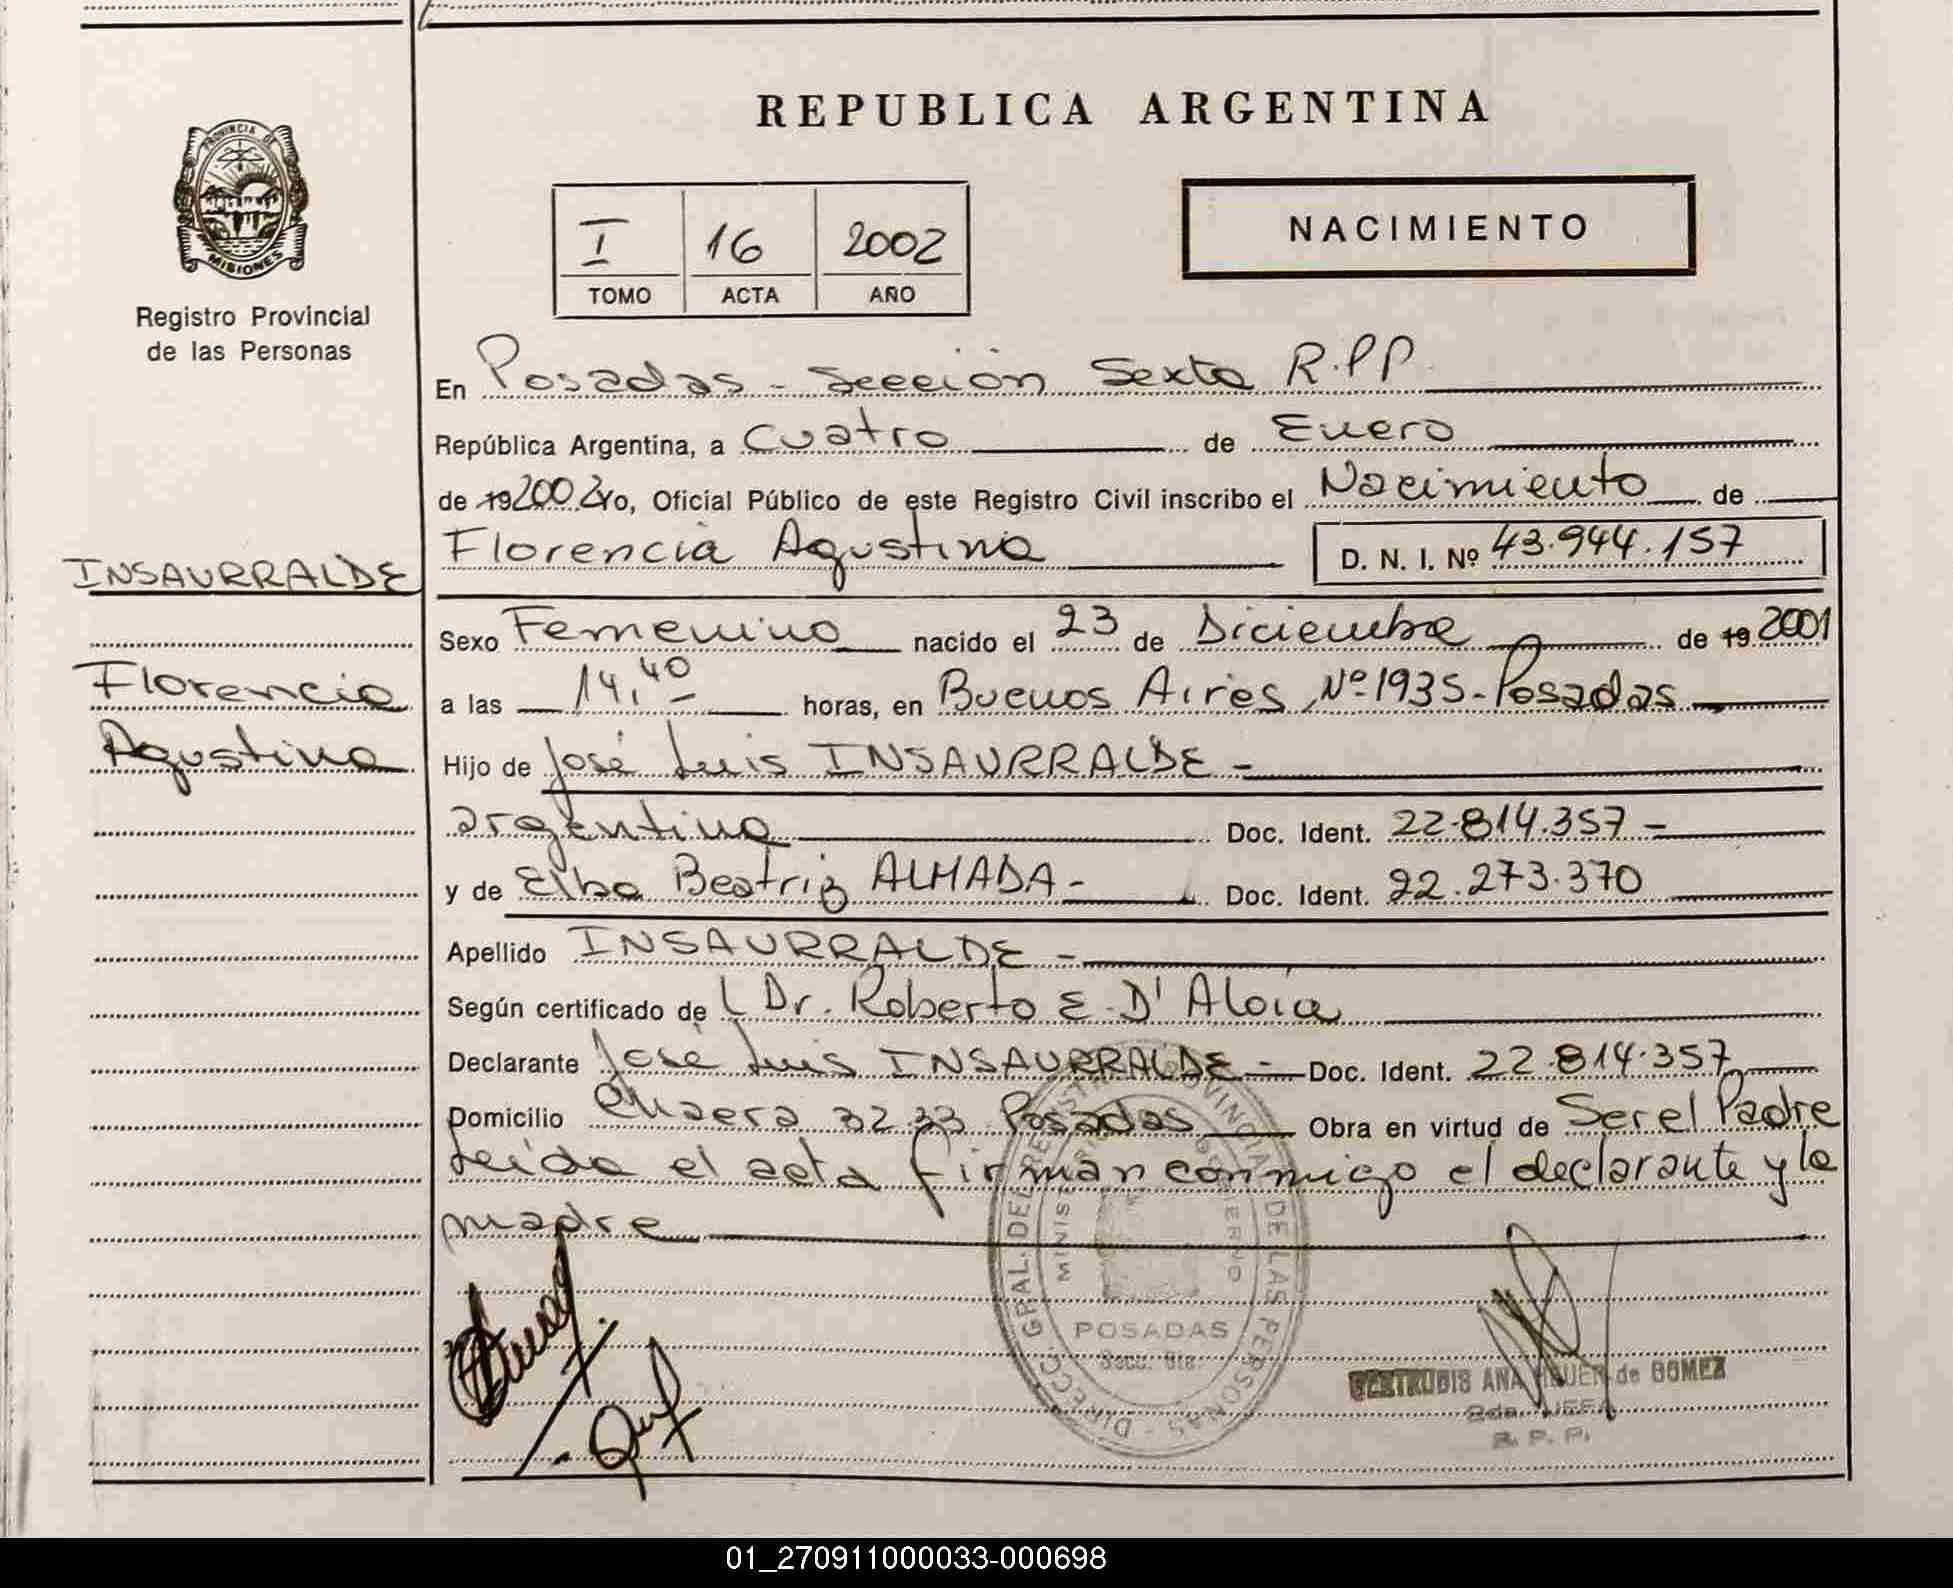 REPUBLICA ARGENTINA
PROVINCIA DE
MISIONES
Registro Provincial
de las Personas
I 16 2002
TOMO ACTA AÑO
NACIMIENTO
En Posadas - Sección Sexta R.P.P.
República Argentina, a Cuatro de Enero
de 19 2002 Yo, Oficial Público de este Registro Civil inscribo el Nacimiento de
Florencia Agustina D. N. I. Nº 43.944.157
INSAURRALDE
Florencia
Agustina
Sexo Femenino nacido el 23 de Diciembre de 19 2001
a las 14,40 horas, en Buenos Aires Nº 1935 - Posadas
Hijo de José Luis INSAURRALDE -
argentino Doc. Ident. 22.814.357 -
y de Elba Beatriz ALMADA - Doc. Ident. 22.273.370
Apellido INSAURRALDE -
Según certificado de Dr. Roberto E. D'Aloia
Declarante José Luis INSAURRALDE - Doc. Ident. 22.814.357
Domicilio 3233 Posadas Obra en virtud de Ser el Padre
Leída el acta firman conmigo el declarante y la
madre
DIRECC. GRAL. DEL REGISTRO PROVINCIAL DE LAS PERSONAS
POSADAS
Secc. 6ta.
GERTRUDIS ANA de GOMEZ
2da. JEFA
R. P. P.
01_270911000033-000698